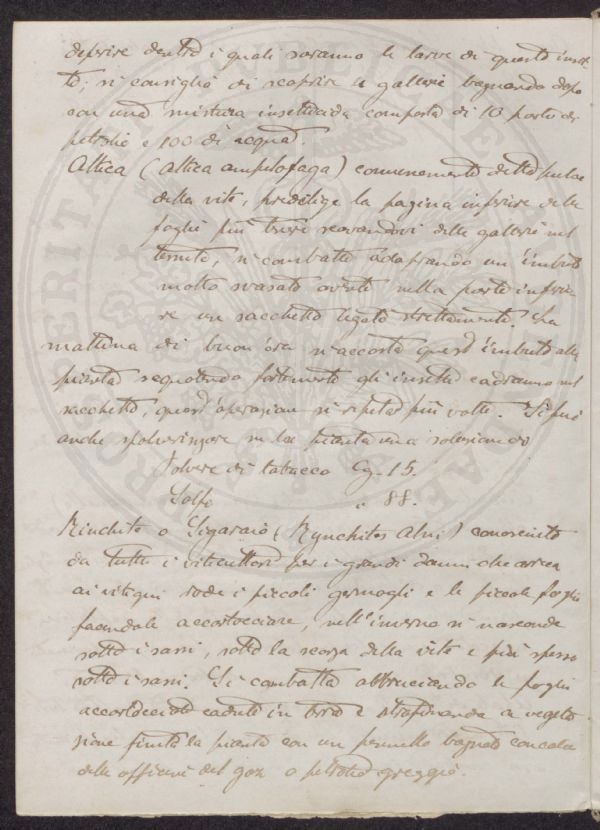 dentro i quali saranno le larve di questo inset-
to; si consiglia di scoprire le gallerie bagnando dopo
con una mistura insetticida composta di 10 parti di
petrolio e 100 di acqua.
Altica (Altica ampelofaga) comunemente detta pulce
della vite, predilige la pagina inferiore delle
foglie più tenere scavandovi delle gallerie nel
tessuto, si combatte adoprando un imbuto
molto svasato avente nella parte inferio-
re un sacchetto legato strettamente. La
mattina di buon'ora si accosta quest'imbuto alla
pianta scquotendo fortemente gli insetti cadranno nel
sacchetto, quest'operazione si ripeta più volte. Si può
anche spolverizzare su la pianta una soluzione di
Polvere di tabacco Cg. 15.
Solfo " 88.
Rinchite o Sigaraio (Rynchites Alni) conosciuto
da tutti i viticultori per i grandi danni che arreca
ai vitigni rode i piccoli germogli e le piccole foglie
facendole accartocciare, nell'inverno si nasconde
sotto i sassi, sotto la scorza della vite e più spesso
sotto i sassi. Si combatte abbruciando le foglie
accartocciate cadute in terra e strofinando a vegeta-
zione finita la pianta con un pennello bagnato con
delle officine del gaz o petrolio greggio.